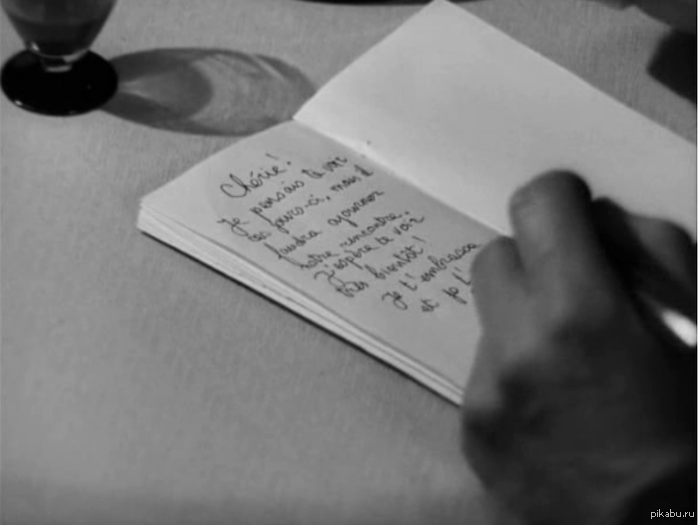 Chérie!
Je pensais te voir
ces jours-ci, mais il
faudra ajourner
notre rencontre.
J'espère te voir
très bientôt!
Je t'embrasse
et je t'
pikabu.ru